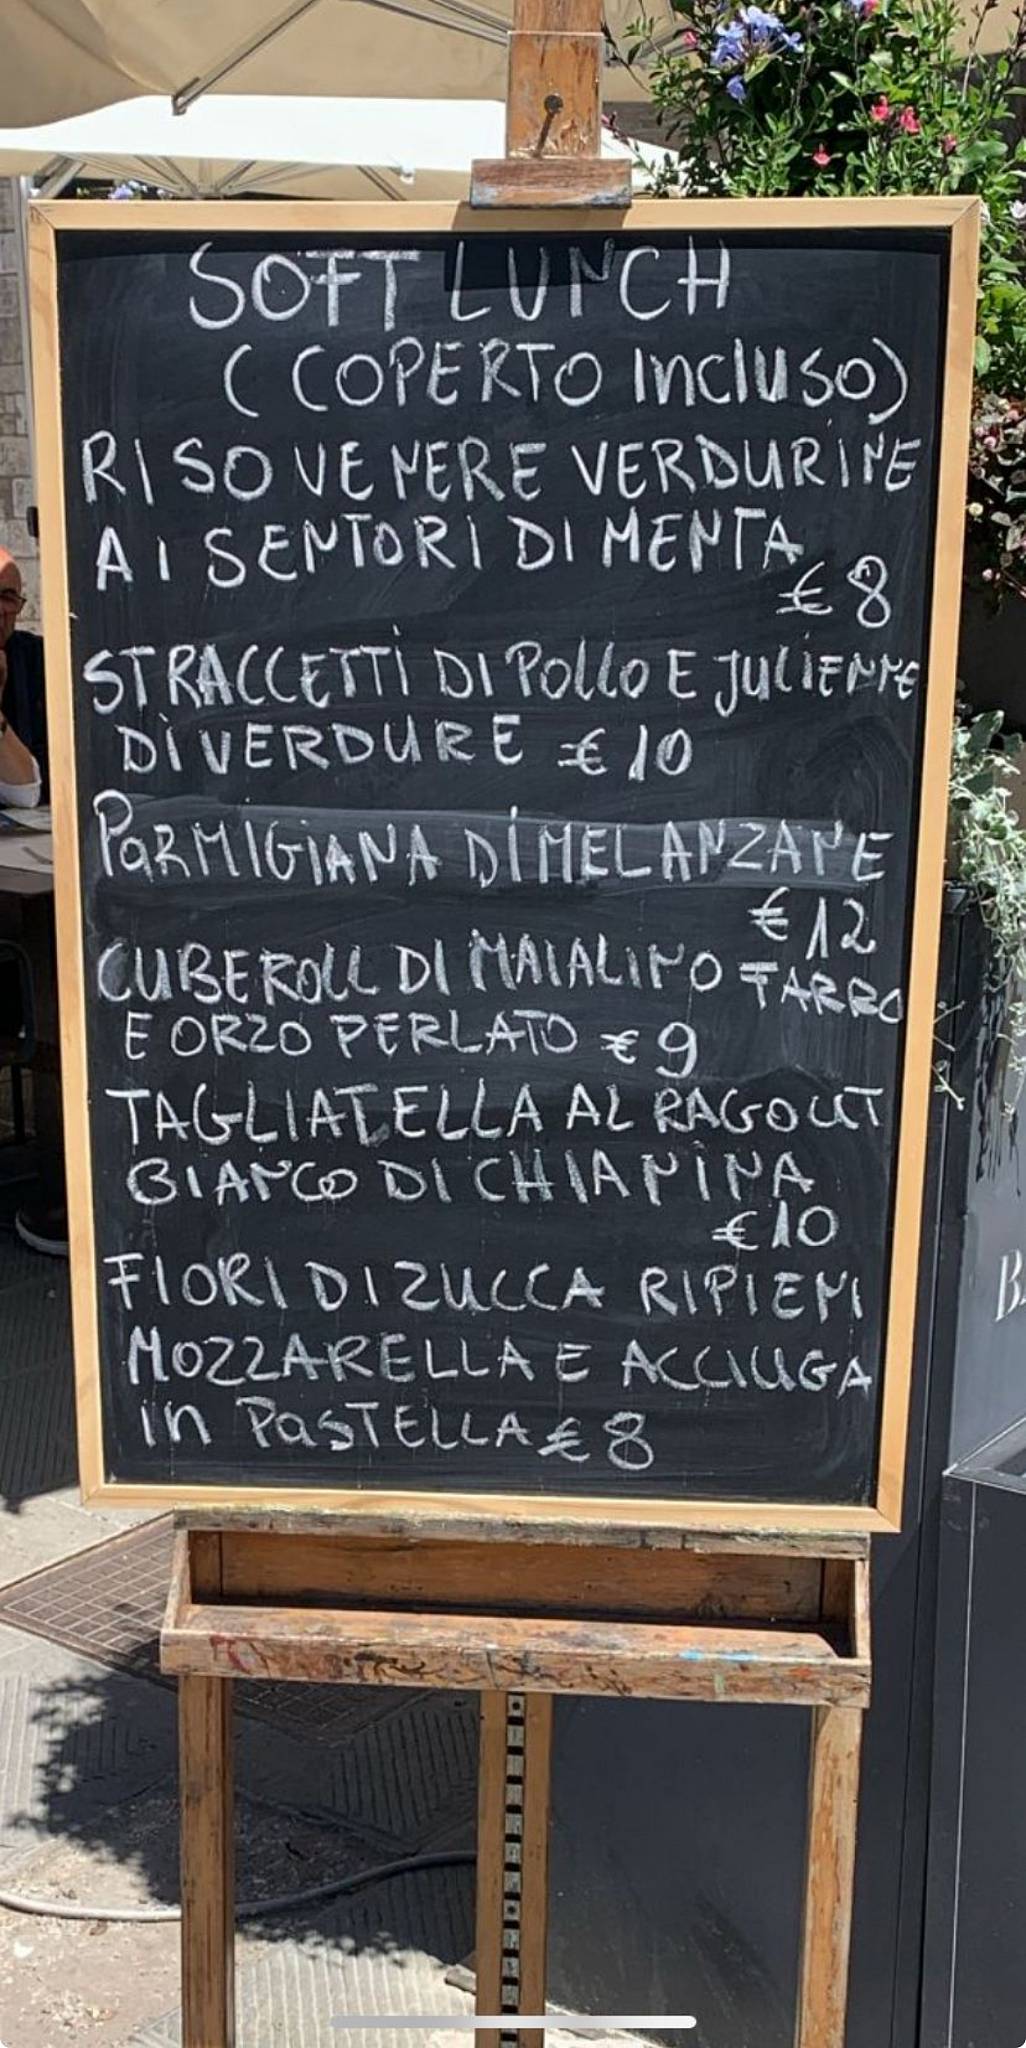 SOFT LUNCH
(COPERTO INCLUSO)
RISO VENERE VERDURINE
AI SENTORI DI MENTA
€ 8
STRACCETTI DI POLLO E JULIENNE
DI VERDURE € 10
PARMIGIANA DI MELANZANE
€ 12
CUBEROLL DI MAIALINO FARRO
E ORZO PERLATO € 9
TAGLIATELLA AL RAGOUT
BIANCO DI CHIANINA
€ 10
FIORI DI ZUCCA RIPIENI
MOZZARELLA E ACCIUGA
IN PASTELLA € 8